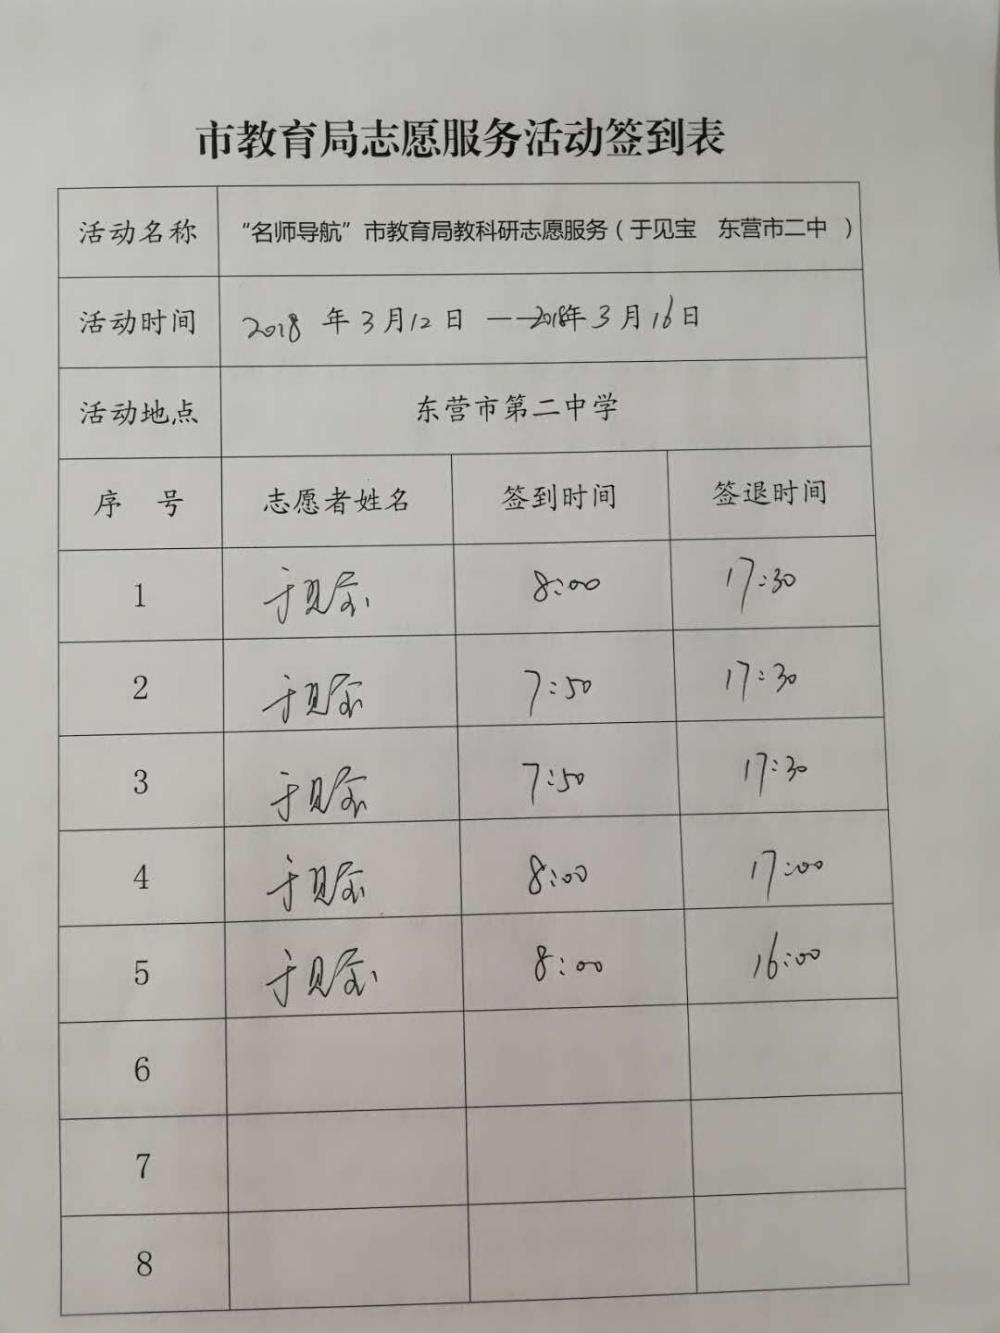 市教育局志愿服务活动签到表
活动名称 “名师导航”市教育局教科研志愿服务（于见宝 东营市二中 ）
活动时间 2018 年 3 月 12 日 ——2018年 3 月 16 日
活动地点 东营市第二中学
序 号 志愿者姓名 签到时间 签退时间
1 于见宝 8:00 17:30
2 于见宝 7:50 17:30
3 于见宝 7:50 17:30
4 于见宝 8:00 17:00
5 于见宝 8:00 16:00
6
7
8